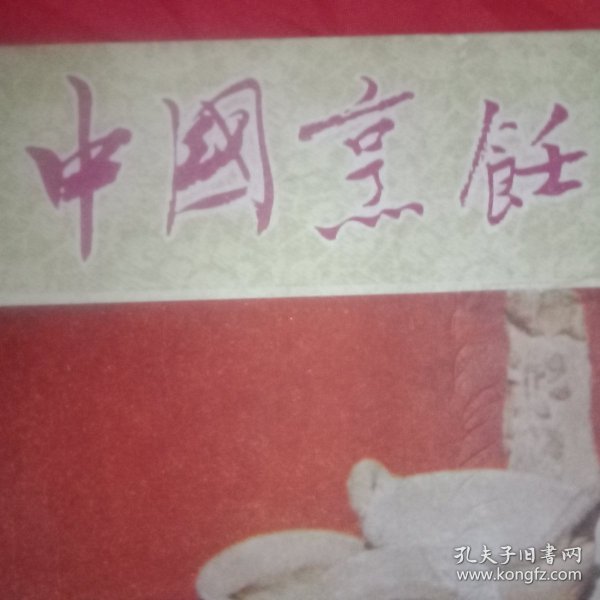 中國烹飪
孔夫子旧書网
www.kongfz.com